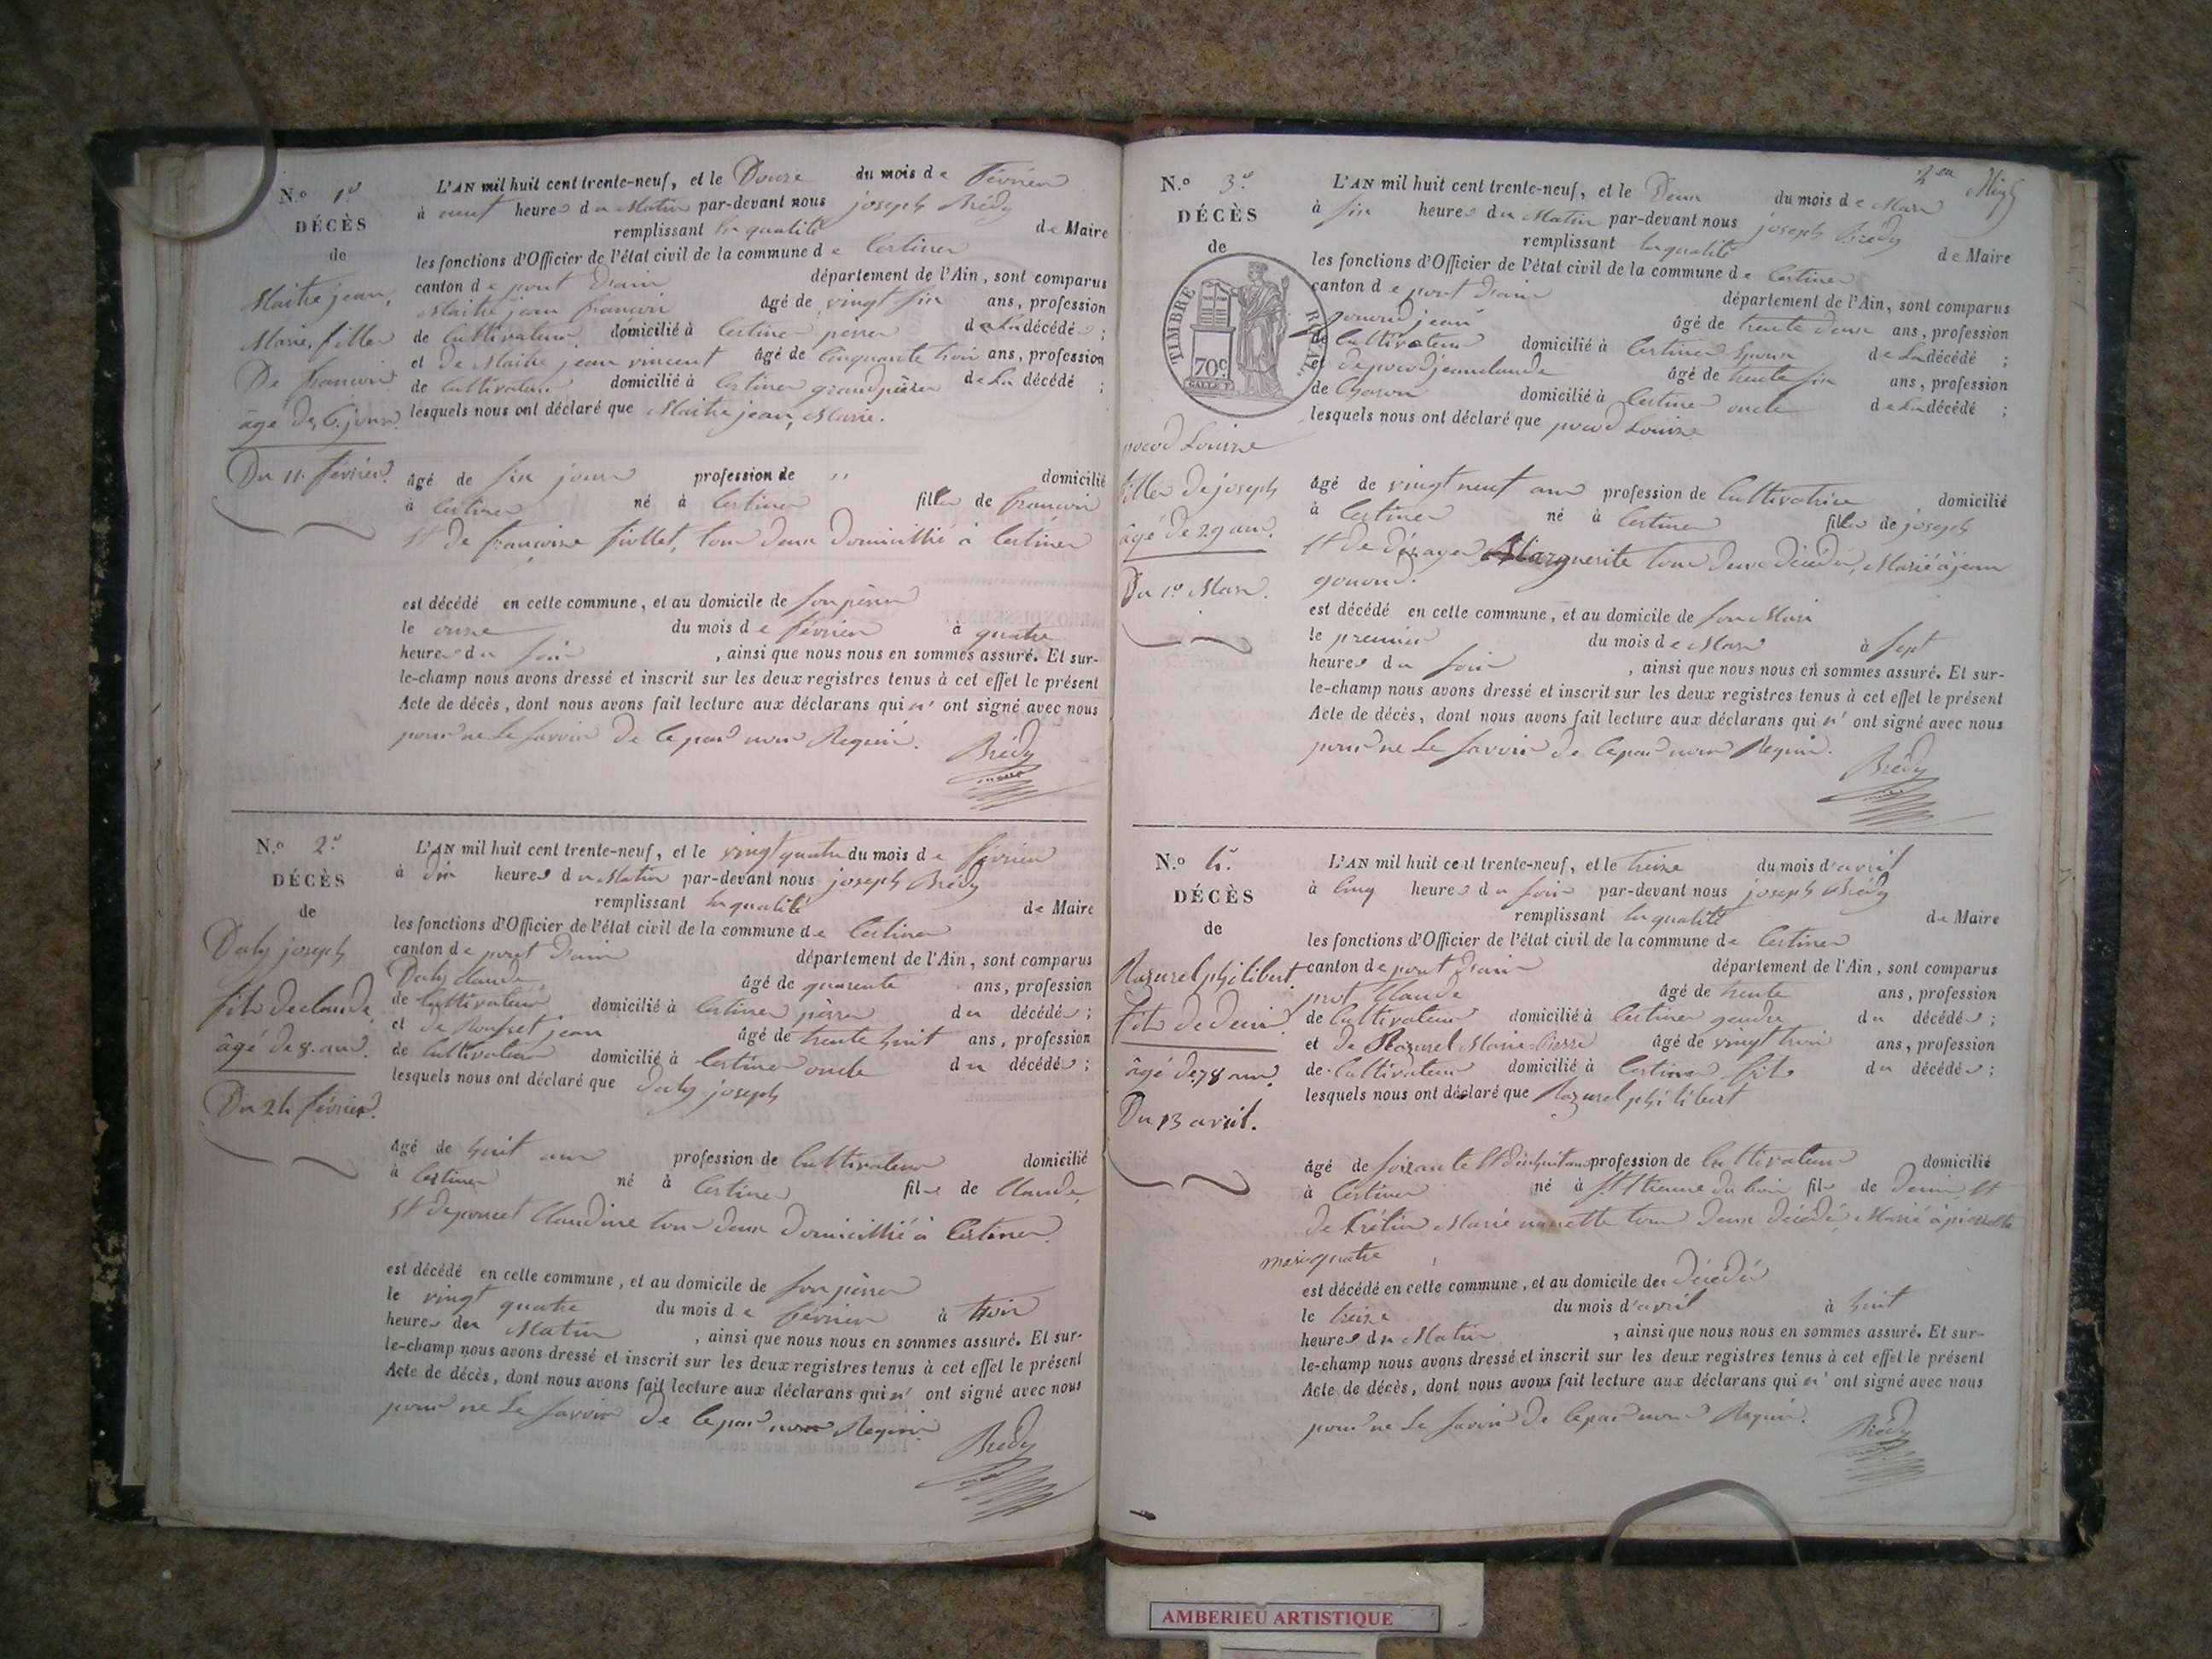 N.º 1.er
DÉCÈS
de
Maitre jean,
Marie, fille
De françois
âgé de 6. jours.
Du 11. février.
L'AN mil huit cent trente-neuf, et le Douze du mois de Février
à neuf heures du Matin par-devant nous joseph Brédy
remplissant la qualité de Maire
les fonctions d'Officier de l'état civil de la commune de Certines
canton de pont d'ain département de l'Ain, sont comparus
Maitre jean françois âgé de vingt six ans, profession
de Cultivateur domicilié à Certines père de la décédée ;
et de Maitre jean vincent âgé de Cinquante trois ans, profession
de Cultivateur domicilié à Certines grand père de la décédé ;
lesquels nous ont déclaré que Maitre jean, Marie.
âgé de six jours profession de ,, domicilié
à Certines né à Certines fille de françois
Et de françoise fiollet, tous deux Domicillié à Certines
est décédé en cette commune, et au domicile de son père
le onze du mois de février à quatre
heures du soir, ainsi que nous nous en sommes assuré. Et sur-
le-champ nous avons dressé et inscrit sur les deux registres tenus à cet effet le présent
Acte de décès, dont nous avons fait lecture aux déclarans qui n' ont signé avec nous
pour ne Le savoir De Ce par nous Requis.
Brédy
N.º 2.e
DÉCÈS
de
Daly joseph
fils de claude
âgé de 8. ans.
Du 24 février.
L'AN mil huit cent trente-neuf, et le vingt quatre du mois de février
à dix heures du Matin par-devant nous joseph Brédy
remplissant la qualité de Maire
les fonctions d'Officier de l'état civil de la commune de Certines
canton de pont d'ain département de l'Ain, sont comparus
Daly claude âgé de quarente ans, profession
de Cultivateur domicilié à Certines père du décédé ;
et de jean âgé de trente huit ans, profession
de Cultivateur domicilié à Certines oncle du décédé ;
lesquels nous ont déclaré que Daly joseph
âgé de huit ans profession de Cultivateur domicilié
à Certines né à Certines fils de Claude,
Et de poncet Claudine tous deux Domicillié à Certines
est décédé en cette commune, et au domicile de son père
le vingt quatre du mois de février à trois
heures du Matin, ainsi que nous nous en sommes assuré. Et sur-
le-champ nous avons dressé et inscrit sur les deux registres tenus à cet effet le présent
Acte de décès, dont nous avons fait lecture aux déclarans qui n' ont signé avec nous
pour ne Le savoir De Ce par nous Requis
Brédy
N.º 3.e
DÉCÈS
de
TIMBRE ROYAL
70c
pocod Louise
fille de joseph
âgé de 29 ans.
Du 1.er Mars.
L'AN mil huit cent trente-neuf, et le Deux du mois de Mars
à six heures du Matin par-devant nous joseph Brédy
remplissant la qualité de Maire
les fonctions d'Officier de l'état civil de la commune de Certines
canton de pont d'ain département de l'Ain, sont comparus
gonord jean âgé de trente deux ans, profession
de Cultivateur domicilié à Certines Epoux de la décédé ;
et de pocod jean claude âgé de trente six ans, profession
de Charon domicilié à Certines oncle de la décédé ;
lesquels nous ont déclaré que pocod Louise
âgé de vingt neuf ans profession de Cultivatrice domicilié
à Certines né à Certines fille de joseph
Et de Marguerite tous deux décédés, Marié à jean
gonord.
est décédé en cette commune, et au domicile de son Mari
le premier du mois de Mars à sept
heures du soir, ainsi que nous nous en sommes assuré. Et sur-
le-champ nous avons dressé et inscrit sur les deux registres tenus à cet effet le présent
Acte de décès, dont nous avons fait lecture aux déclarans qui n' ont signé avec nous
pour ne Le savoir De Ce par nous Requis.
Brédy
N.º 4.e
DÉCÈS
de
Mazurel philibert
fils de Denis
âgé de 78 ans.
Du 13 avril.
L'AN mil huit cent trente-neuf, et le treize du mois d'avril
à Cinq heures du soir par-devant nous joseph Brédy
remplissant la qualité de Maire
les fonctions d'Officier de l'état civil de la commune de Certines
canton de pont d'ain département de l'Ain, sont comparus
prost Claude âgé de trente ans, profession
de Cultivateur domicilié à Certines gendre du décédé ;
et de Mazurel Marie Pierre âgé de vingt trois ans, profession
de Cultivateur domicilié à Certines fils du décédé ;
lesquels nous ont déclaré que Mazurel philibert
âgé de soixante Et dix huit ans profession de Cultivateur domicilié
à Certines né à St. Etienne du bois fils de Denis, Et
de Crétin Marie nanette tous Deux décédé, Marié à pierrette
est décédé en cette commune, et au domicile des décédés
le treize du mois d'avril à huit
heures du Matin, ainsi que nous nous en sommes assuré. Et sur-
le-champ nous avons dressé et inscrit sur les deux registres tenus à cet effet le présent
Acte de décès, dont nous avons fait lecture aux déclarans qui n' ont signé avec nous
pour ne Le savoir De Ce par nous Requis.
Brédy
AMBERIEU ARTISTIQUE